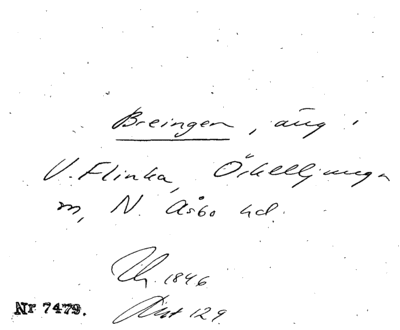 Breingen, äng i
V. Flinka, Örkelljunga
sn, N. Åsbo hd.
1846
Nr 7479.
Akt 129